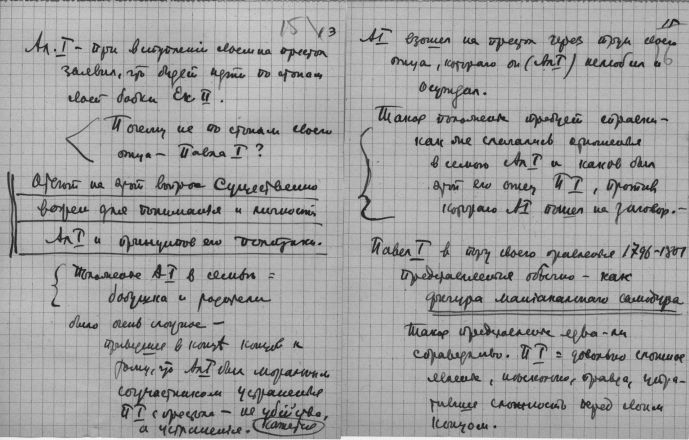 15 VЭ
Ал. I – при вступлении своем на престол
заявил, что будет идти по стопам
своей бабки Ек II.
Почему не по стопам своего
отца – Павла I?
Ответ на этот вопрос существенно
важен для понимания и личности
Ал I и принципов его политики.
Положение А I в семье =
бабушка и родители
было очень сложное –
приведшее в конце концов к
тому, что Ал I был моральным
соучастником устранения
П I с престола – не убийства,
а устранения. Кажется
15
А I взошел на престол через труп своего
отца, которого он (Ал I) не любил и
осуждал.
Такое положение требует справки –
как же сложились отношения
в семье Ал I и каков был
этот его отец П I, против
которого А I пошел на заговор. –
Павел I в пору своего правления 1796–1801
представляется обычно – как
фигура маниакального самодура
Такое представление едва-ли
справедливо. П I = довольно сложное
явление, правда, утра-
тившее сложность перед своим
концом.